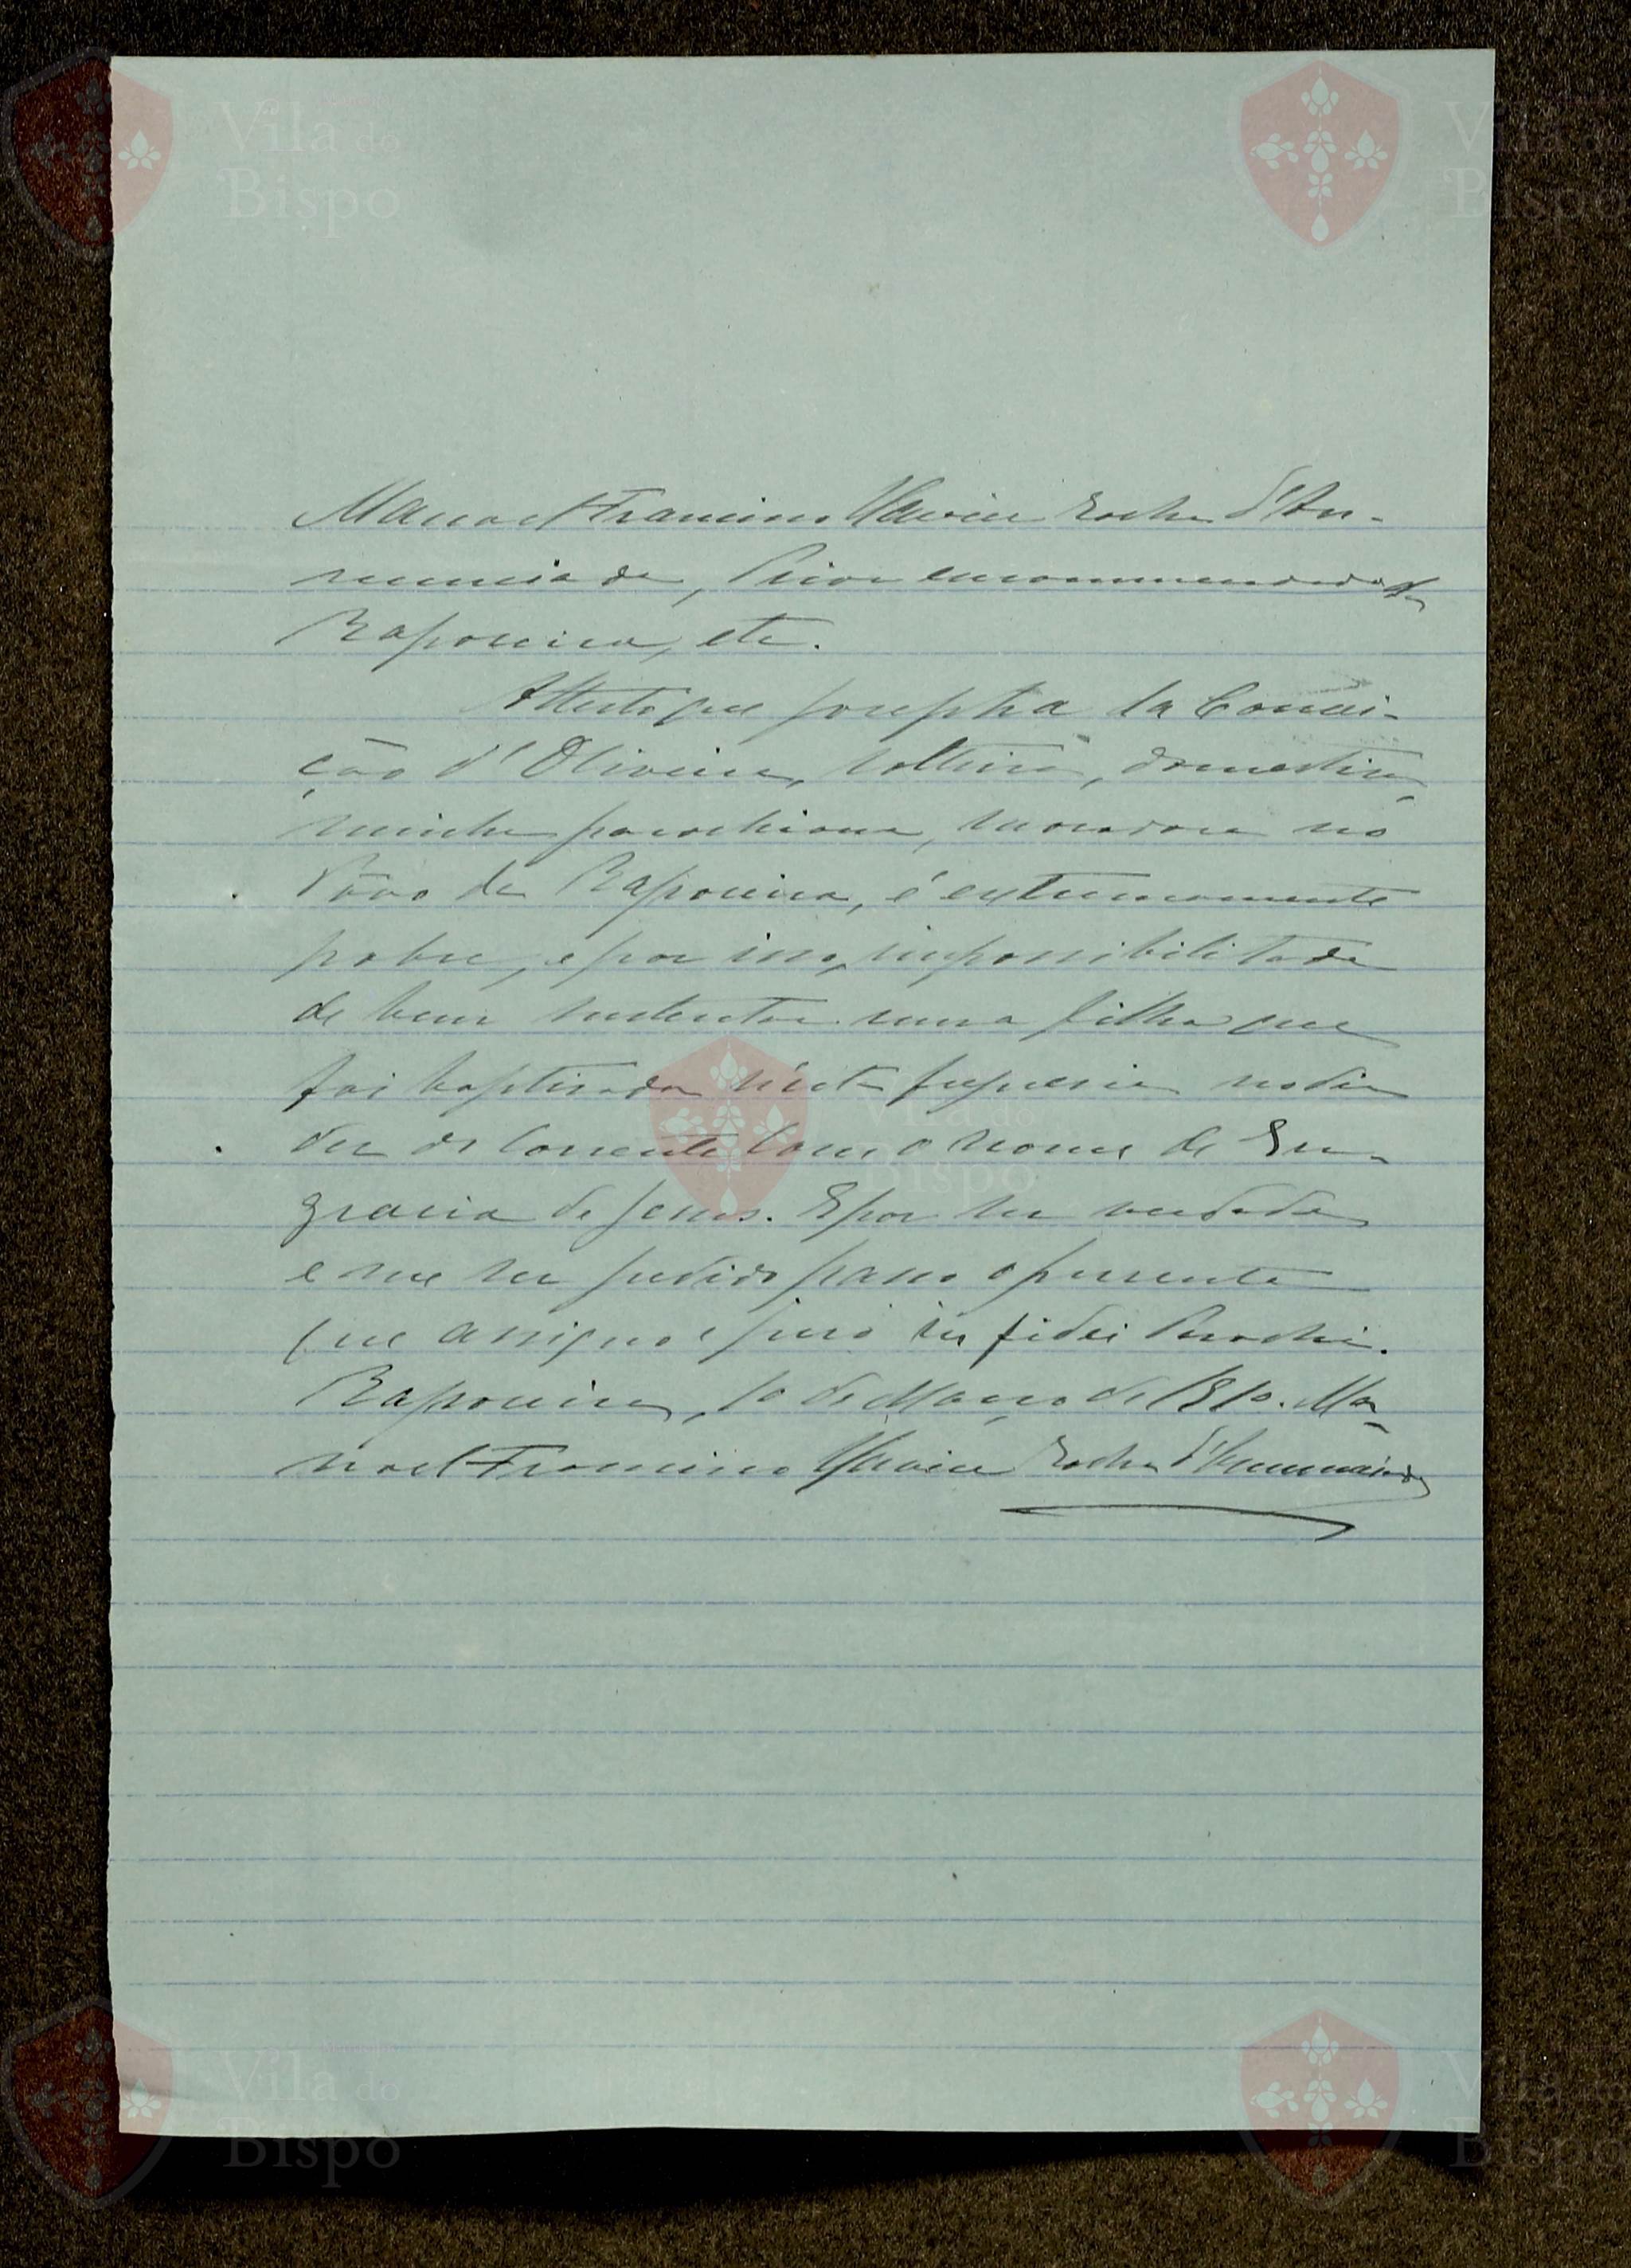 Manoel Francisco Xavier Rocha d'An-
nunciada, Prior encommendado da
Raposeira, etc.
Attesto que Josepha da Concei-
ção d'Oliveira, solteira, domestica,
minha parochiana, moradora no
Povo da Raposeira, é extremamente
pobre, e por isso, impossibilitada
de bem sustentar uma filha que
foi baptisada n'esta freguesia no dia
dez do corrente com o nome de En-
gracia de Jesus. E por ser verdade
e me ser pedido passo o presente
que assigno e juro in fidei Parochi.
Raposeira, 10 de Março de 1810. Ma-
noel Francisco Xavier Rocha d'Annunciada
Vila do
Bispo